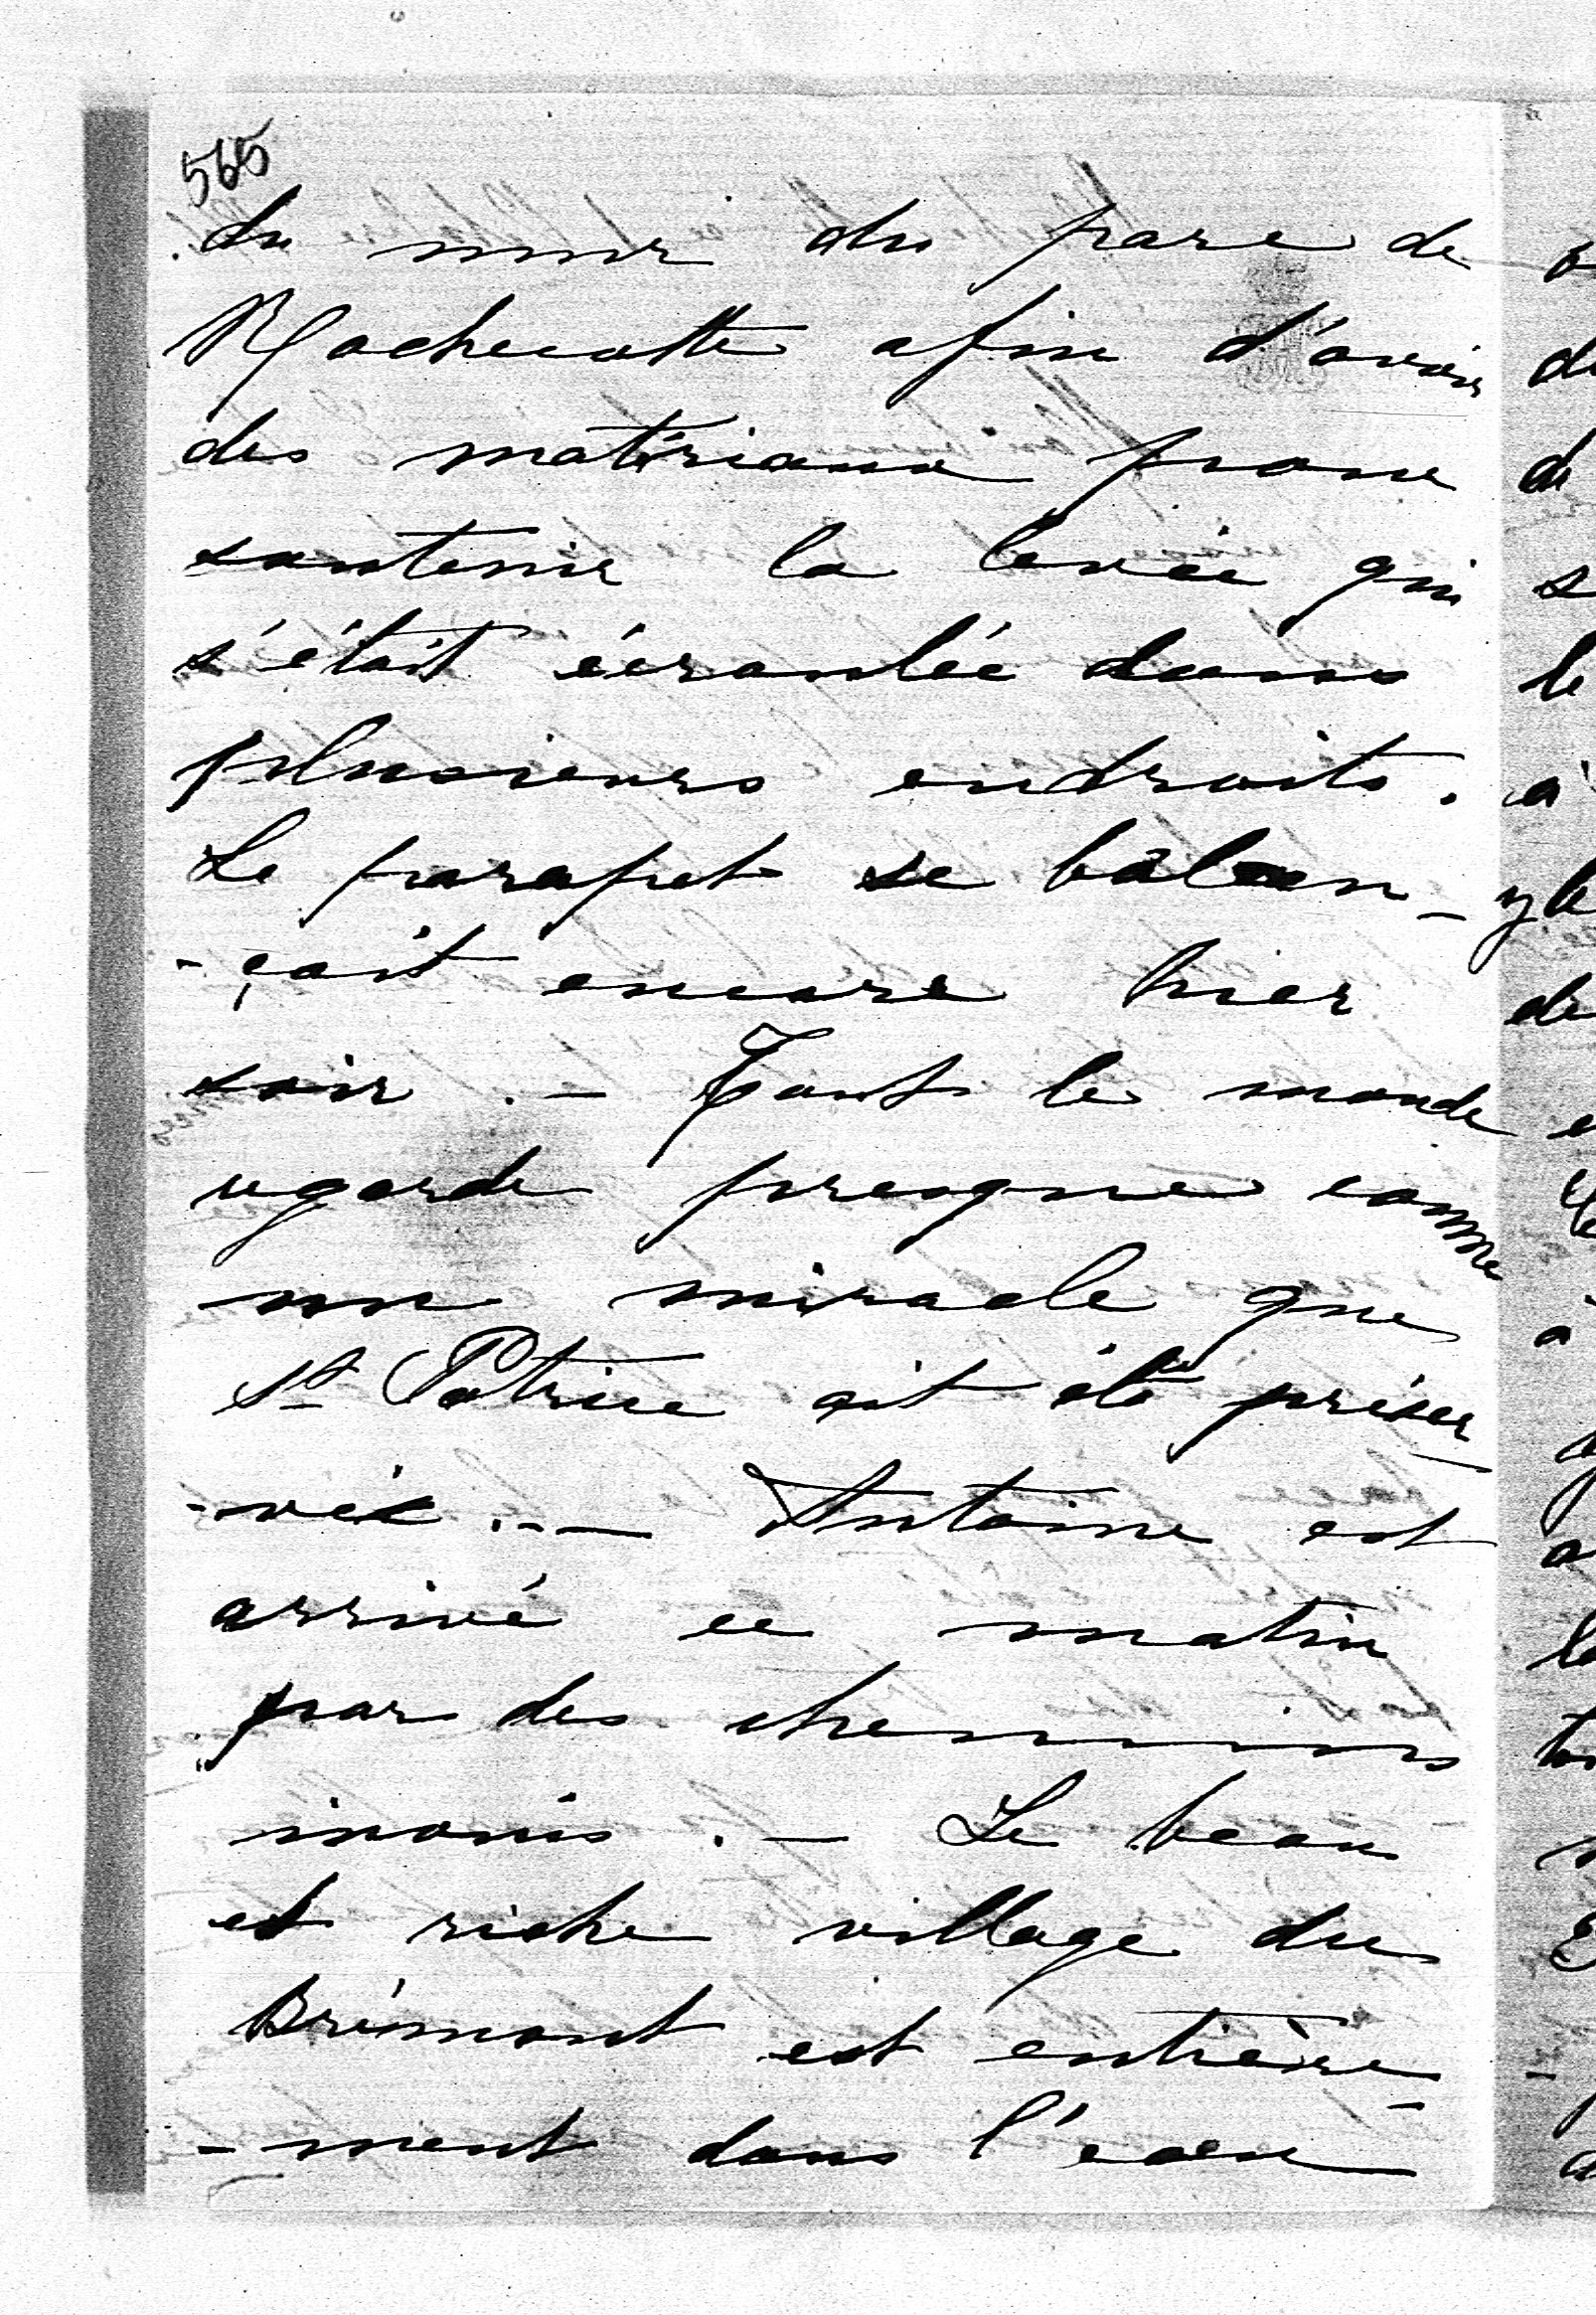 565
du mur du parc de
Rochecotte afin d'avoir
des matériaux pour
soutenir la levée qui
s'était écroulée dans
plusieurs endroits.
Le parapet se balan-
-çait encore hier
soir. - Tout le monde
regarde presque comme
un miracle que
St Patrice ait été préser
-vée. - Antoine est
arrivé ce matin
par des chemins
inouis. - Le beau
et riche village du
Brémont est entière-
-ment dans l'eau